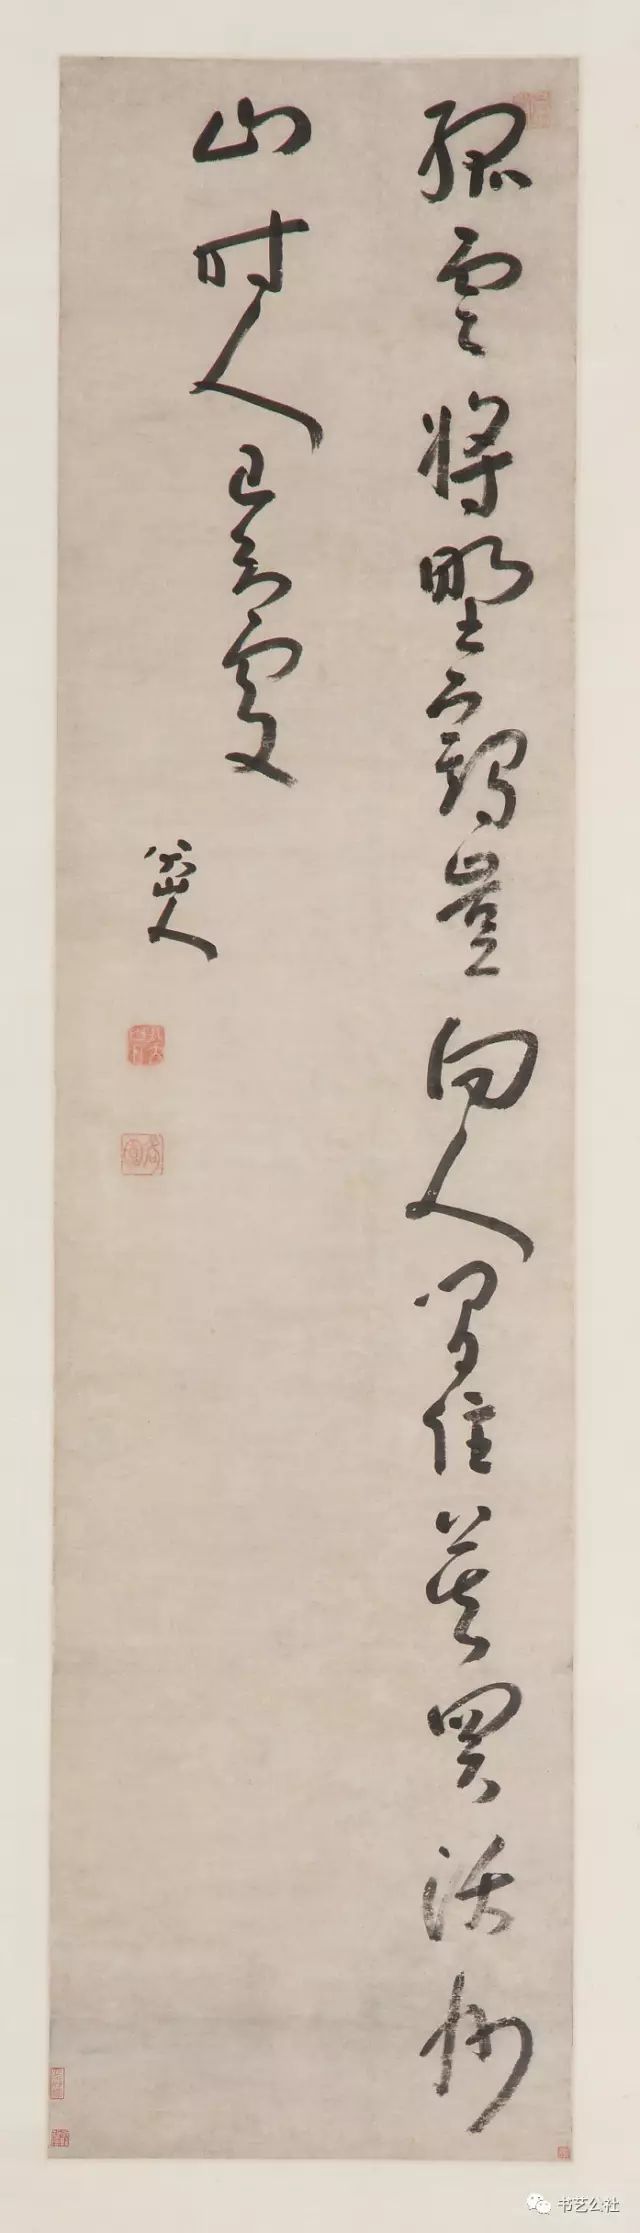 孤雲將野鶴豈向人間住莫買沃州
山时人已知處
八大山人
书艺公社